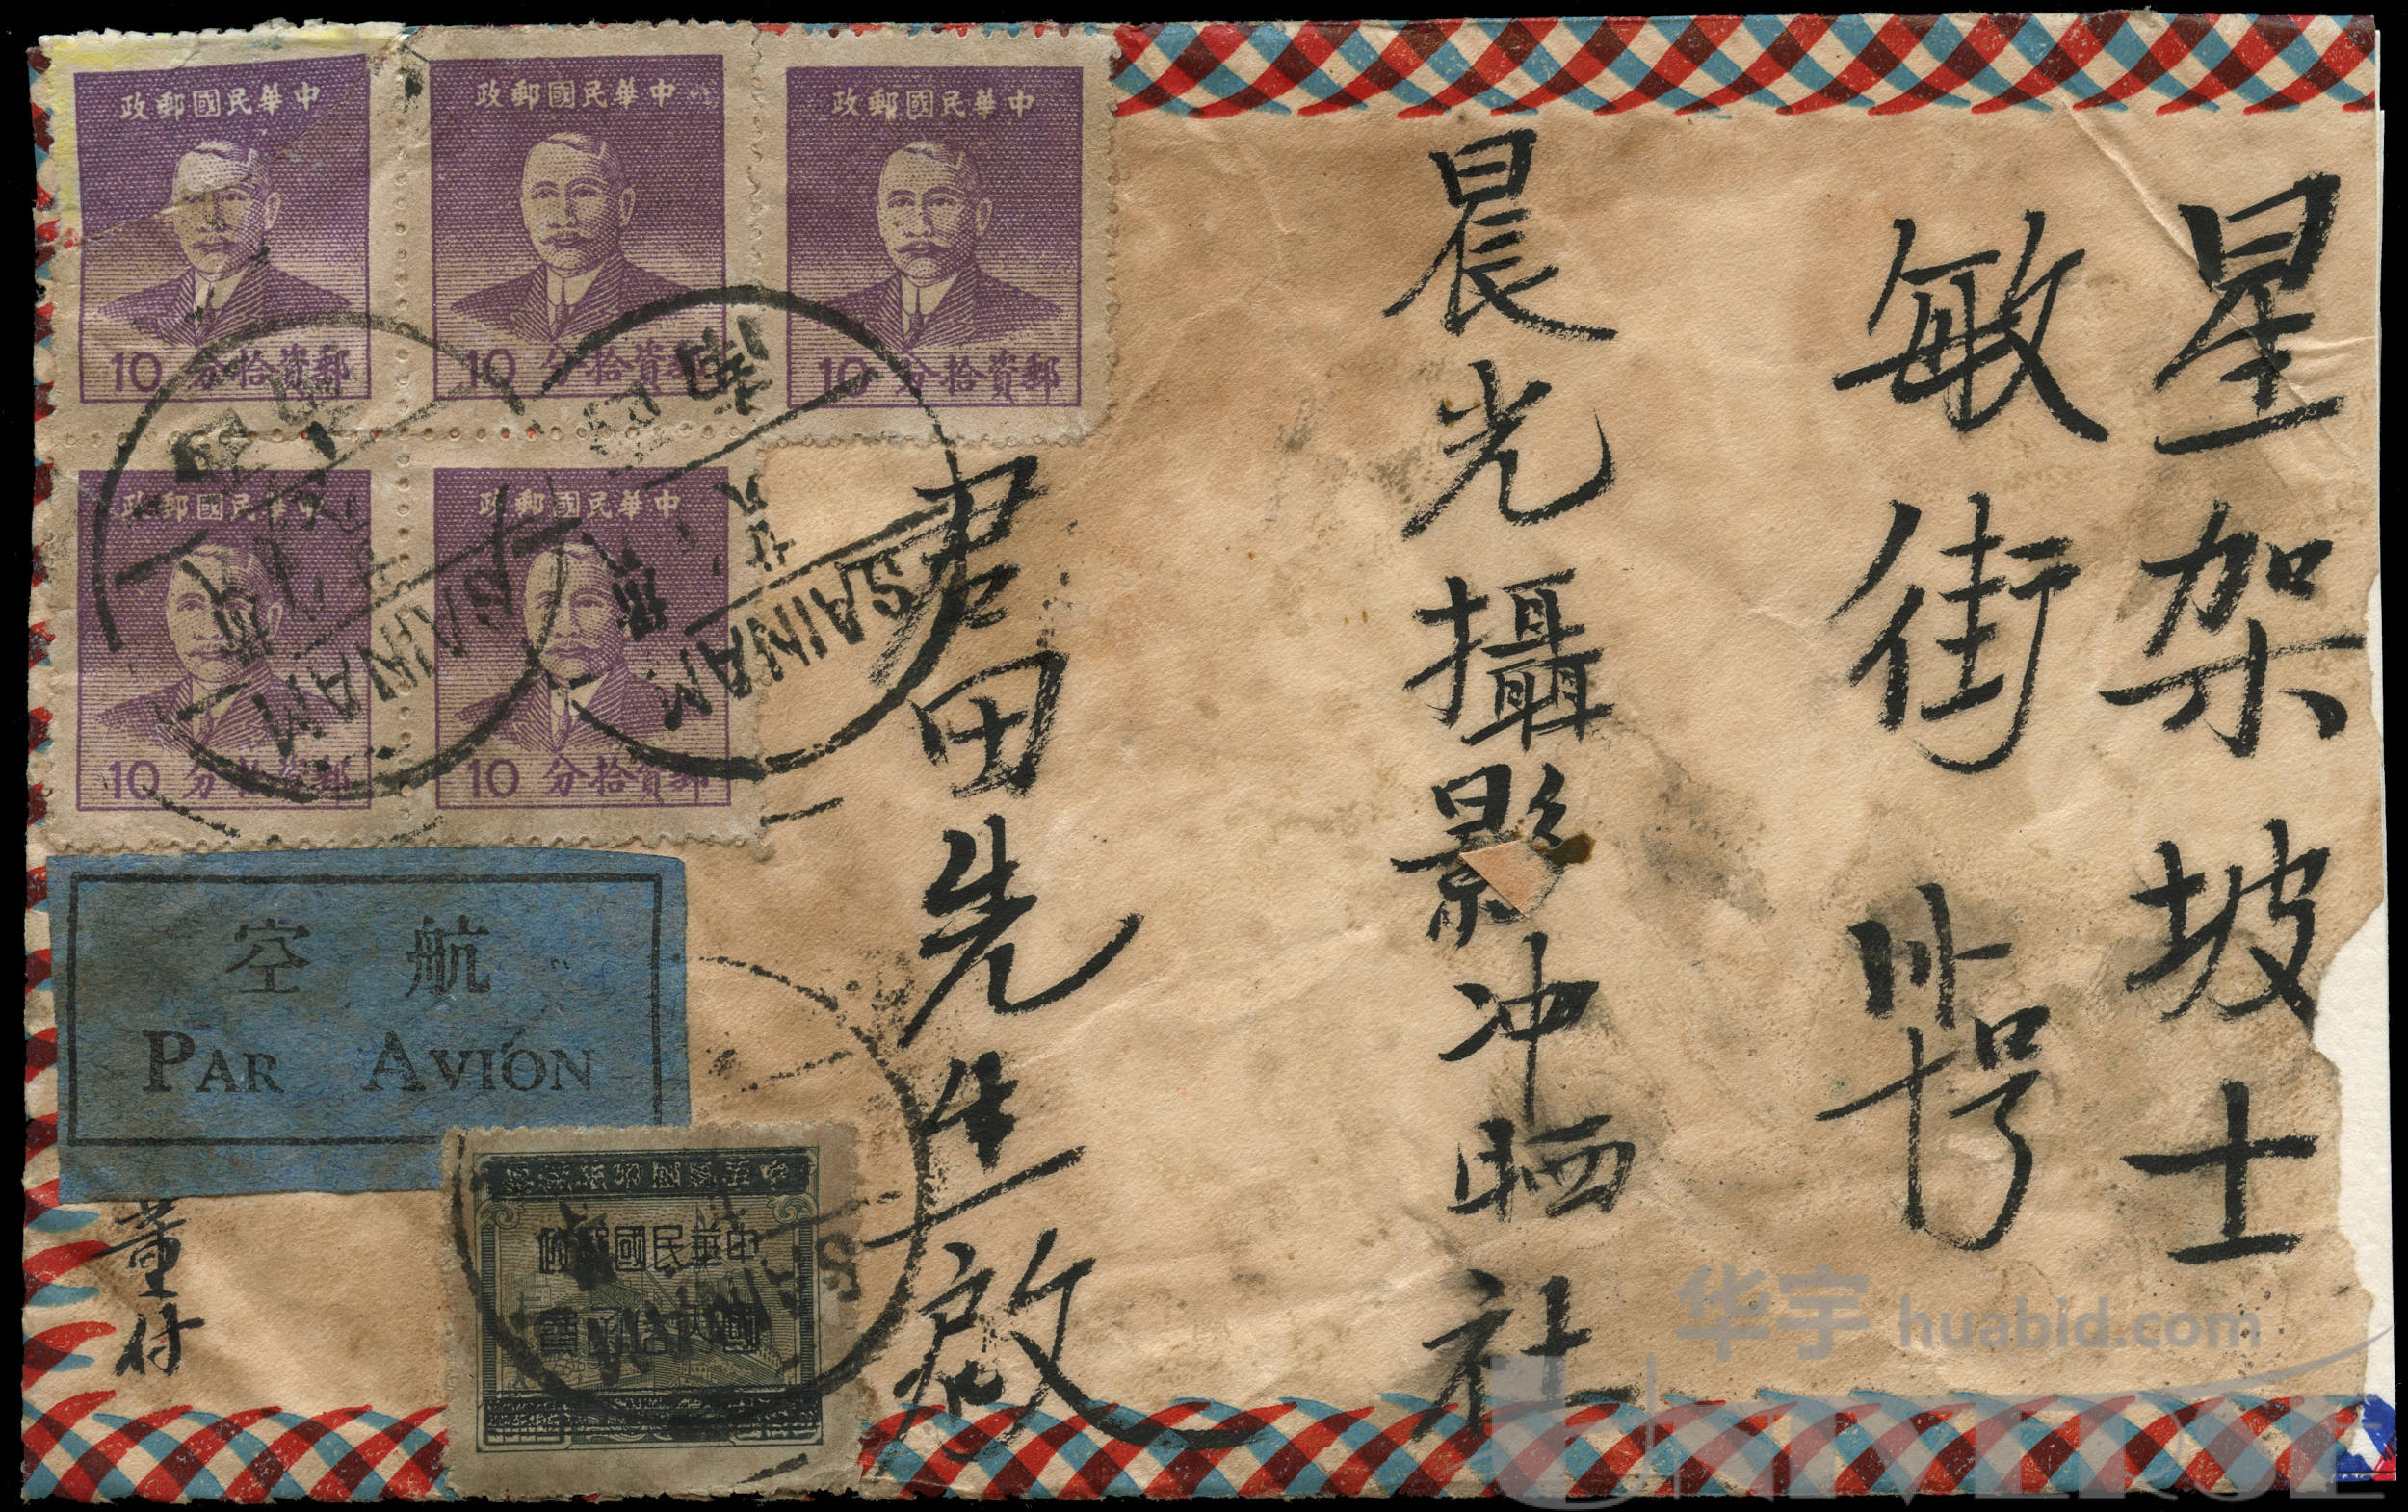 星架坡士
敏街
號
晨光攝影冲晒社
君田先生啟
董付
中華民國郵政
10 郵資拾分
中華民國郵政
10 郵資拾分
中華民國郵政
10 郵資拾分
中華民國郵政
10 郵資拾分
中華民國郵政
10 郵資拾分
航空
PAR AVION
中華民國郵政
國內信函費
SAINAM
SAINAM
华宇 huabid.com
UNIVERSE